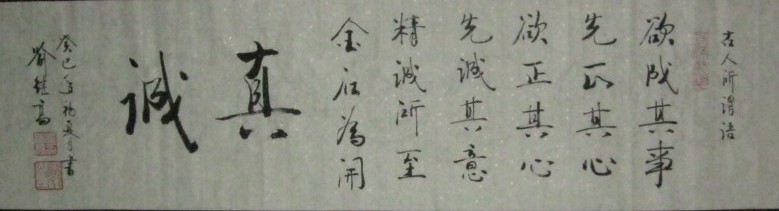 古人所谓诺
欲成其事
先正其心
欲正其心
先诚其意
精诚所至
金石为开
真诚
癸巳年初夏月书